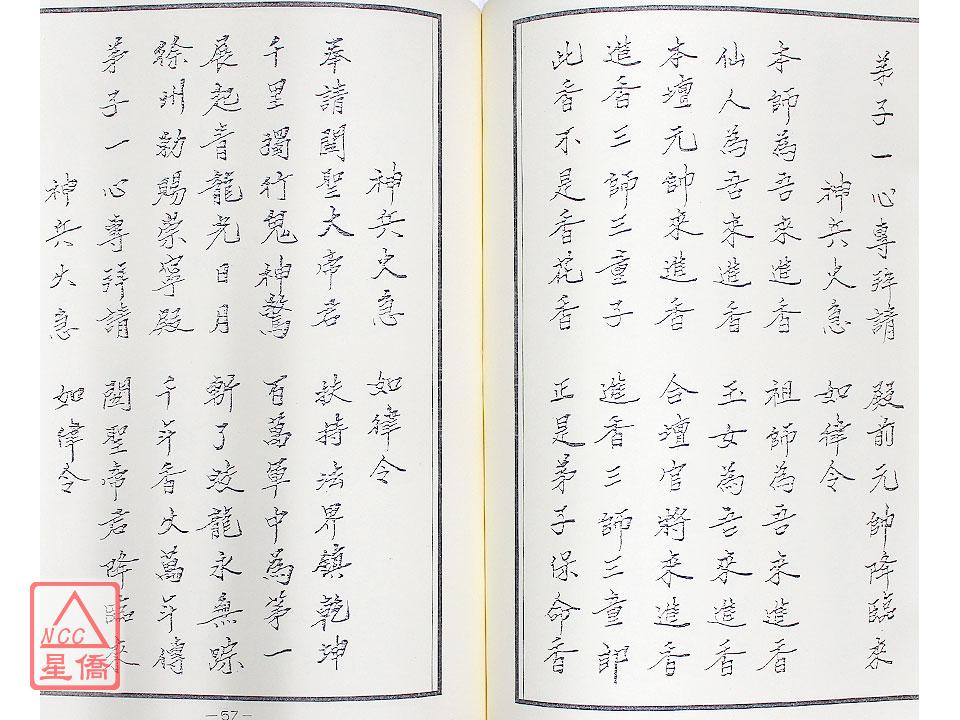 弟子一心專拜請 殿前元帥降臨來
神兵火急 如律令
本師為吾來進香 祖師為吾來進香
仙人為吾來進香 玉女為吾來進香
本壇元帥來進香 合壇官將來進香
進香三師三童子 進香三師三童郎
此香不是香花香 正是弟子保命香
神兵火急 如律令
奉請關聖大帝君 扶持法界鎮乾坤
千里獨行鬼神驚 百萬軍中為第一
展起青龍光日月 斬了蛟龍永無踪
徐州勅賜榮寧殿 千年香火萬年傳
弟子一心專拜請 關聖帝君降臨來
神兵火急 如律令
—57—
NCC
星僑